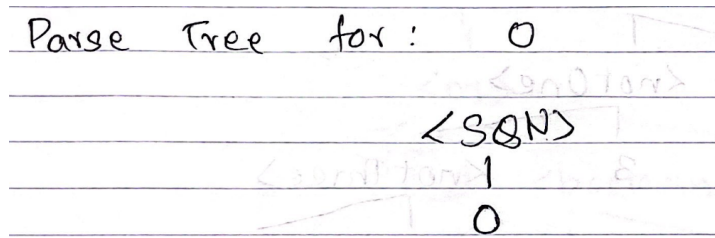 Parse Tree for: 0
<SQN>
|
0